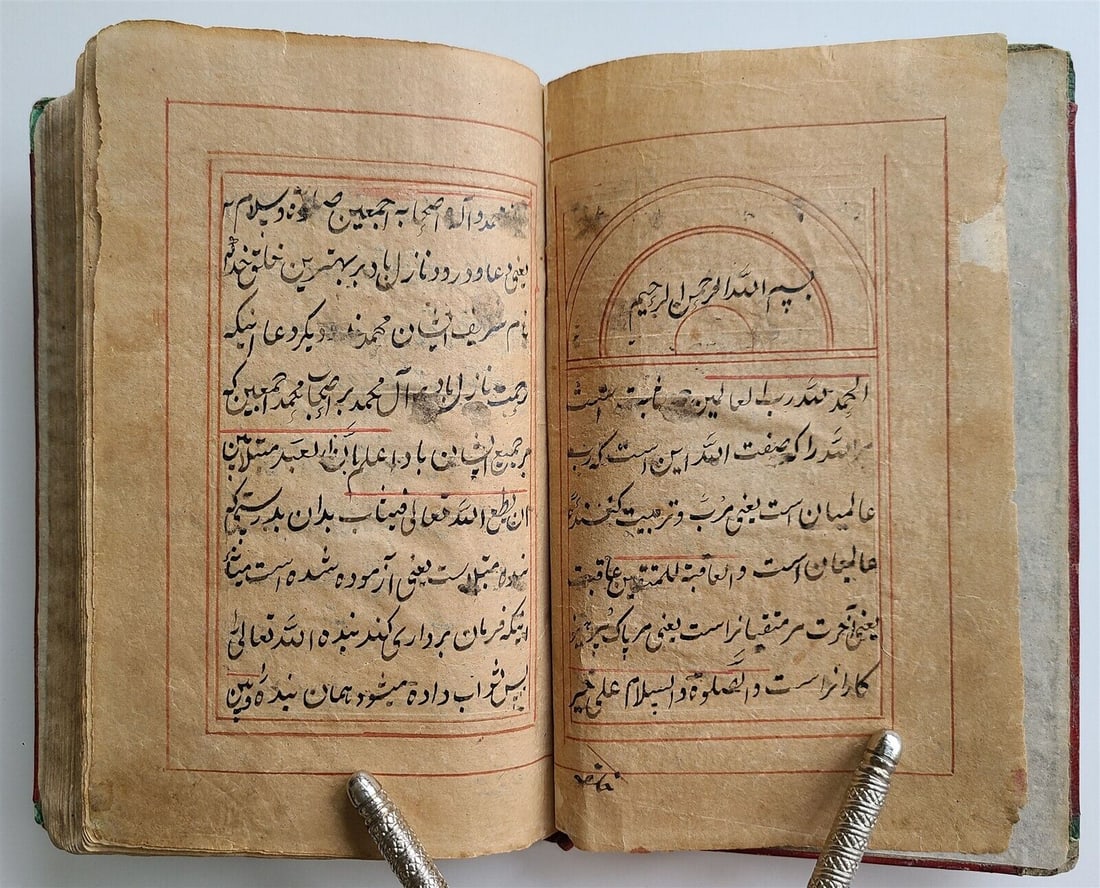 بسم الله الرحمن الرحیم
الحمد لله رب العالمین
الله را که صفت الله این است که رب
عالمیان است یعنی مرب و تربیت کننده
عالمیان است و العاقبة للمتقین عاقبت
یعنی آخرت مر متقیانراست یعنی مر پاک
کارانراست والصلوة والسلام علی خیر
محمد و آله اصحابه اجمعین صلوة و سلام
یعنی دعا و درود نازل باد بر بهترین خلق
نام شریف ایشان محمد دیگر دعا اینکه
رحمت نازل باد آل محمد بر اصحاب محمد اجمعین که
بر جمیع ایشان باد اعلم بان العبد مبتلا بین
ان یطع الله تعالی فیثاب بدان بدرستی که
بنده مبتلاست یعنی آزموده شده است میانه
اینکه فرمان برداری کند بنده الله تعالی را
پس ثواب داده میشود همان بنده و بین